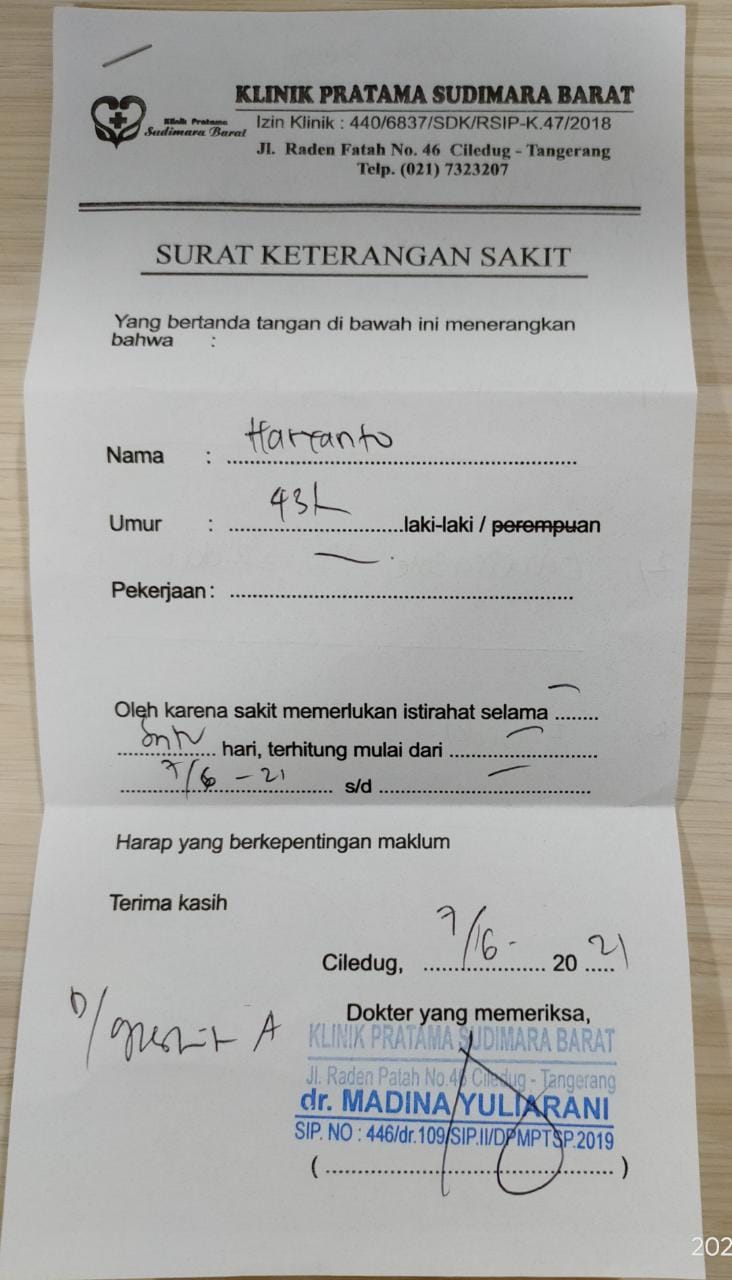 KLINIK PRATAMA SUDIMARA BARAT
Klinik Pratama
Sudimara Barat
Izin Klinik : 440/6837/SDK/RSIP-K.47/2018
Jl. Raden Fatah No. 46 Ciledug - Tangerang
Telp. (021) 7323207
SURAT KETERANGAN SAKIT
Yang bertanda tangan di bawah ini menerangkan
bahwa :
Nama : Haryanto
Umur : 43 laki-laki / perempuan
Pekerjaan :
Oleh karena sakit memerlukan istirahat selama ........
hari, terhitung mulai dari ........
7/6 - 21 s/d ........
Harap yang berkepentingan maklum
Terima kasih
Ciledug, 7/6 - 20 21
Dokter yang memeriksa,
KLINIK PRATAMA SUDIMARA BARAT
Jl. Raden Patah No.46 Ciledug - Tangerang
dr. MADINA YULIARANI
SIP. NO : 446/dr.109/SIP.II/DPMPTSP.2019
( ........ )
202